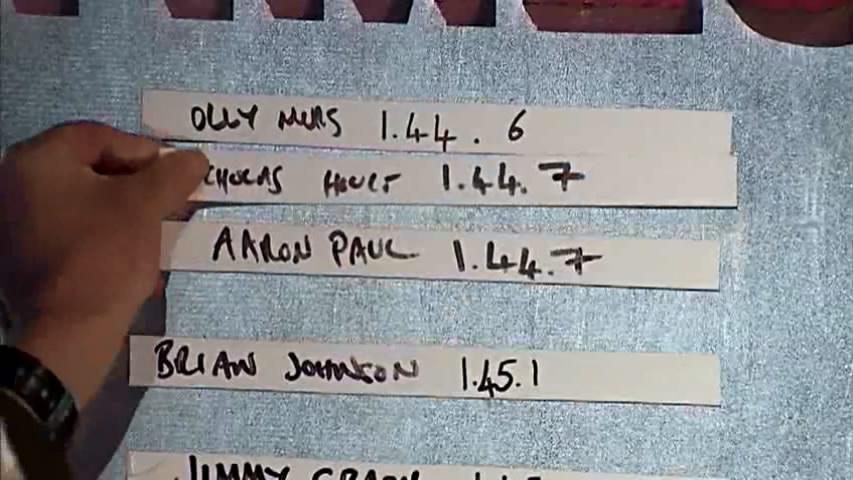 OLLY MURS 1.44.6
CHOLAS HOULT 1.44.7
AARON PAUL 1.44.7
BRIAN JOHNSON 1.45.1
JIMMY